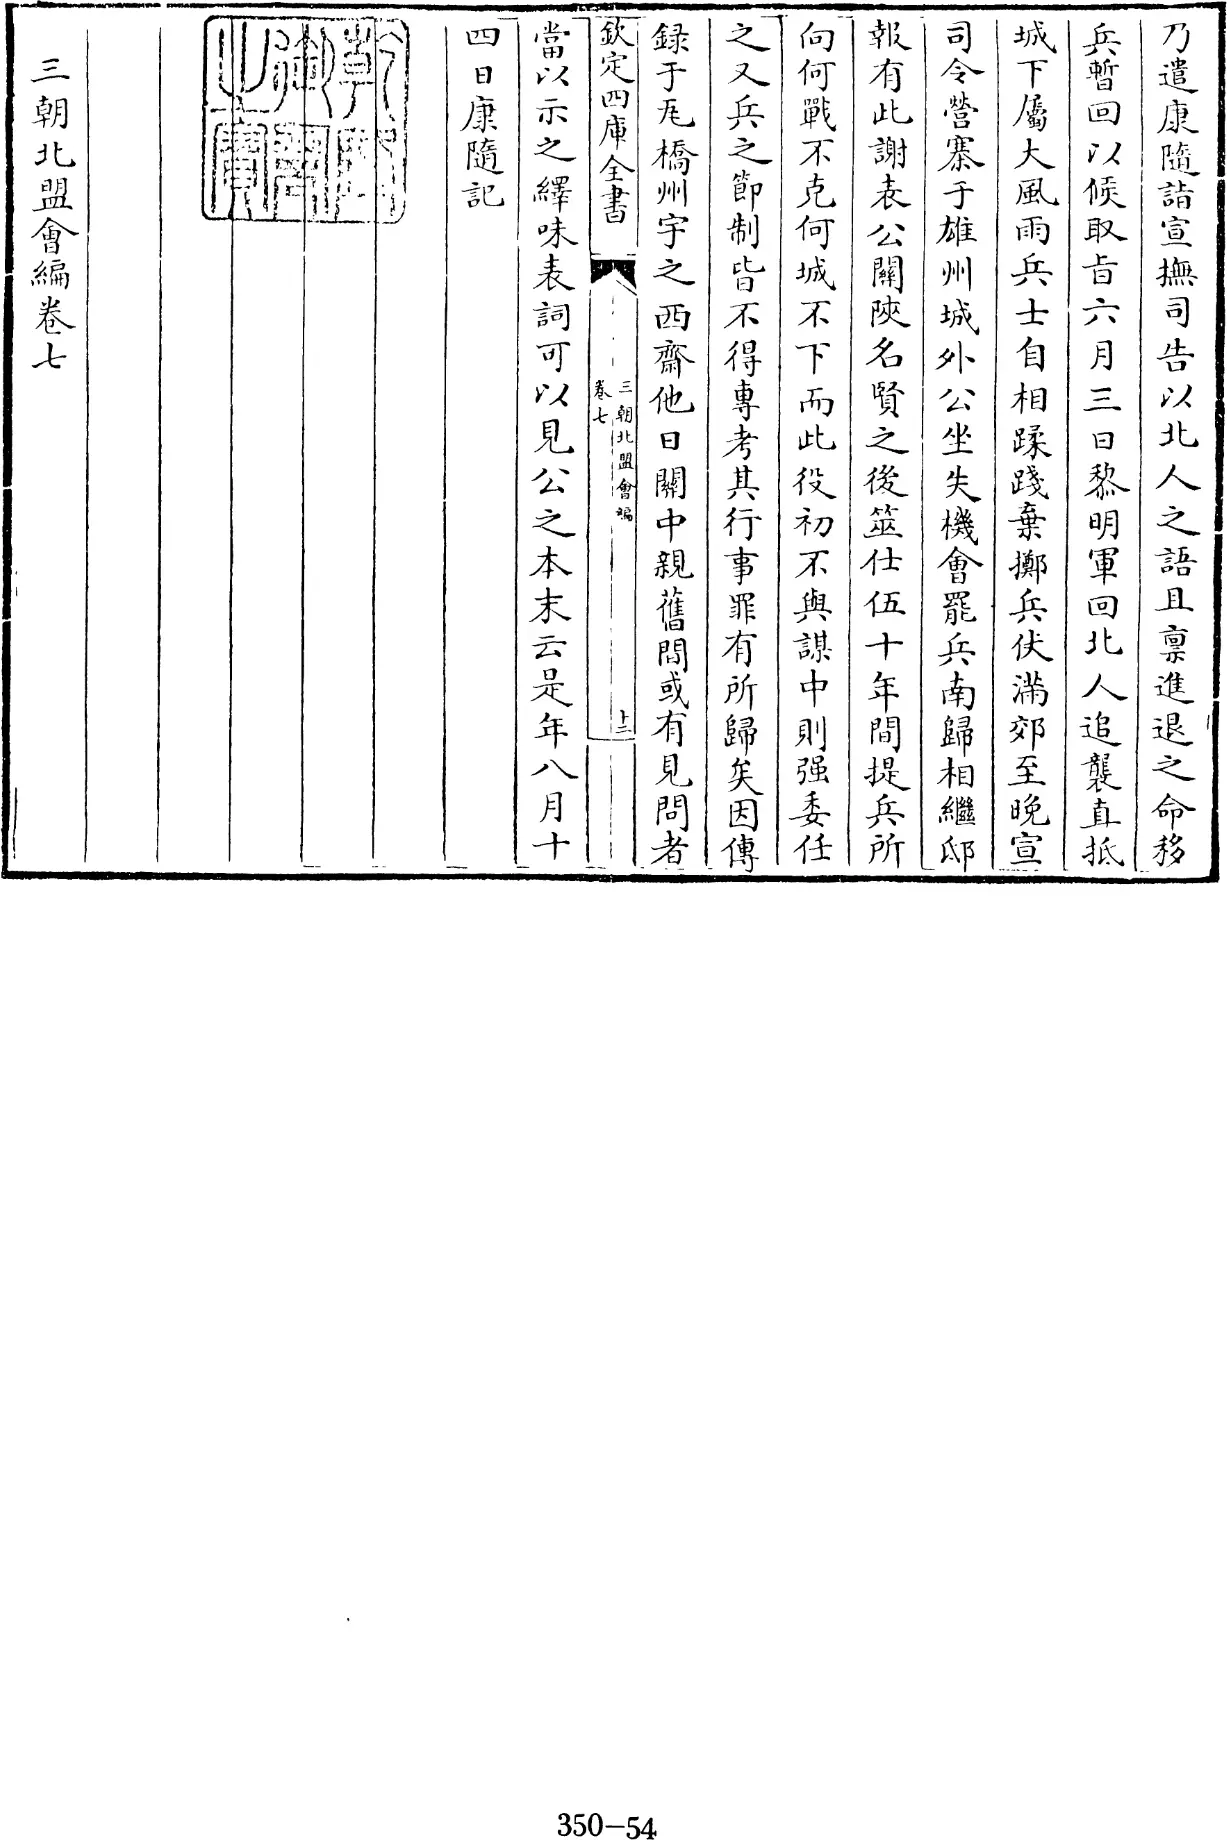 乃遣康隨詣宣撫司告以北人之語且禀進退之命移
兵暫回以候取㫖六月三日黎明軍回北人追襲直抵
城下屬大風雨兵士自相蹂踐棄擲兵伏滿郊至晚宣
司令營寨于雄州城外公坐失機會罷兵南歸相繼邸
報有此謝表公闗陜名賢之後筮仕伍十年間提兵所
向何戰不克何城不下而此役初不與謀中則强委任
之又兵之節制皆不得專考其行事罪有所歸矣因傳
録于瓦橋州宇之西齋他日闗中親舊間或有見問者
欽定四庫全書
三朝北盟會編
卷七
十二
當以示之繹味表詞可以見公之本末云是年八月十
四日康隨記
三朝北盟會編卷七
350-54